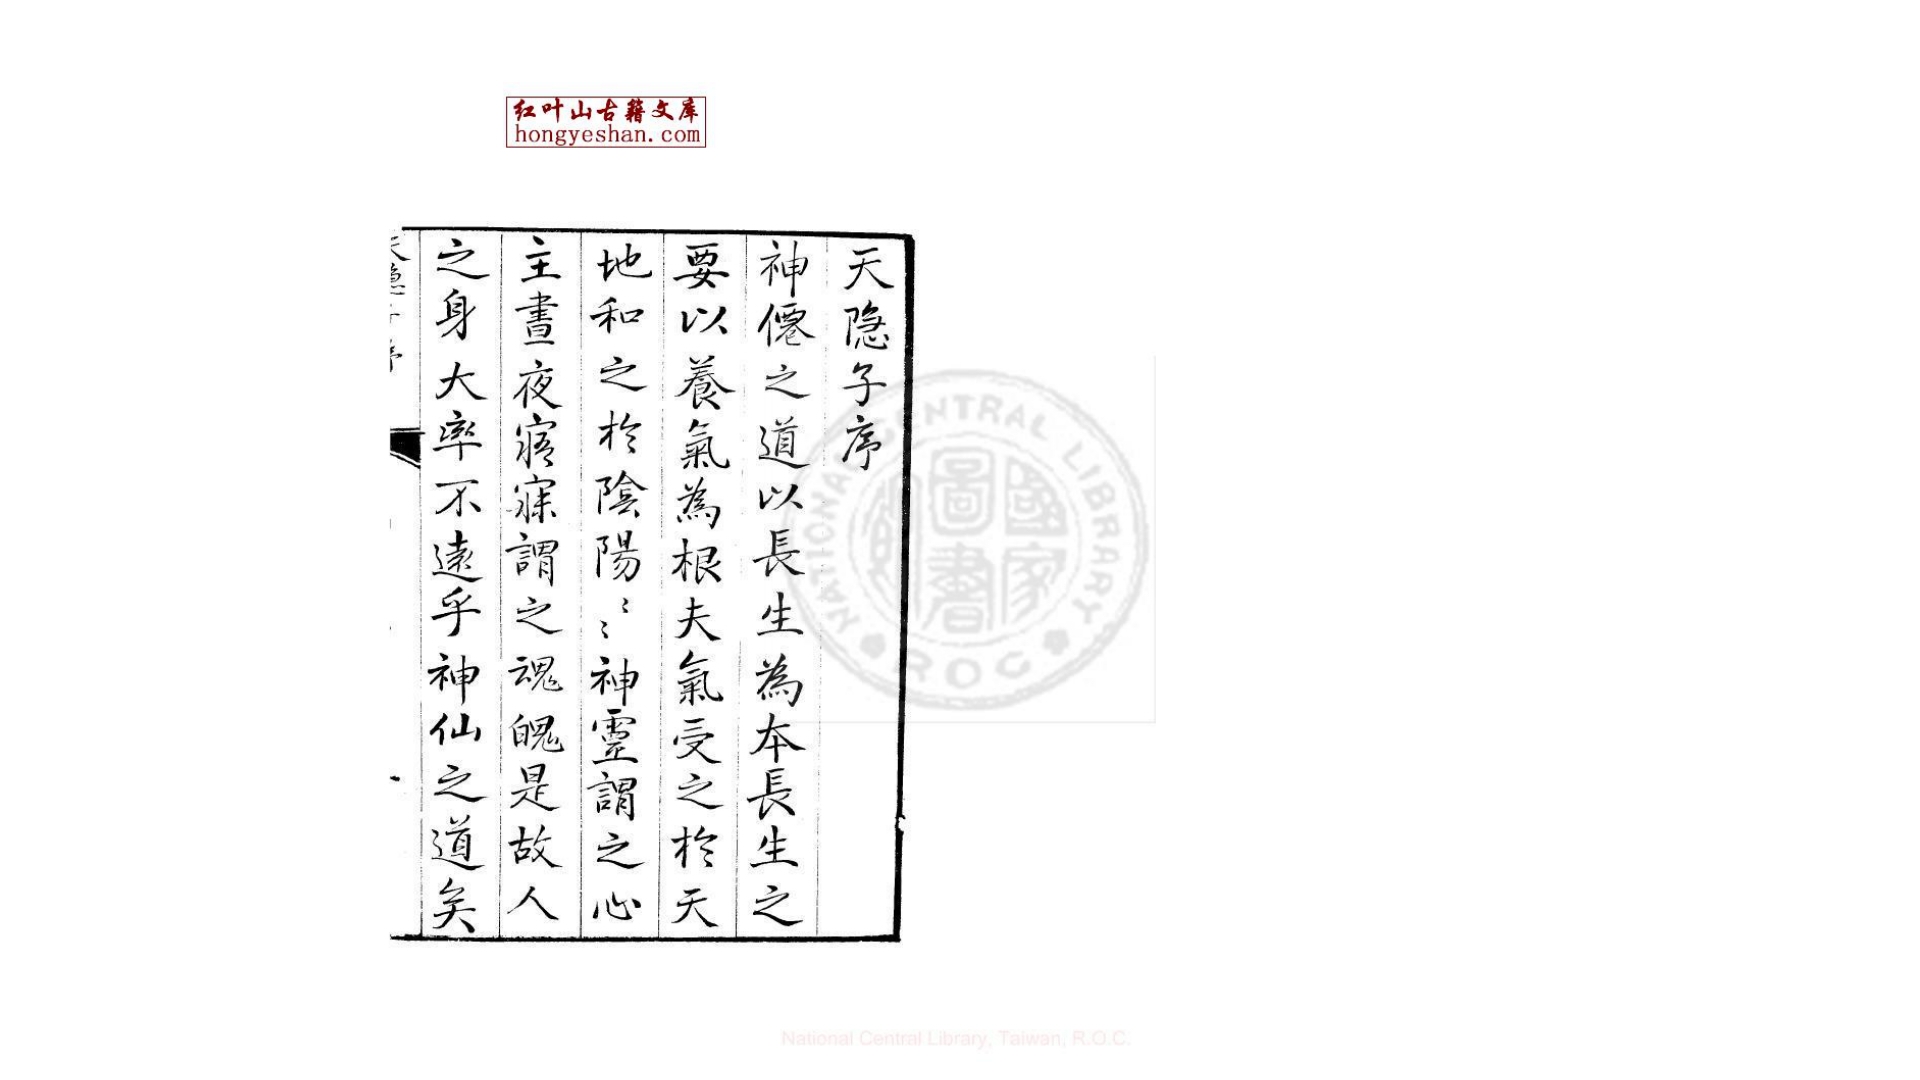 红叶山古籍文库
hongyeshan.com
天隐子序
神僊之道以長生為本長生之
要以養氣為根夫氣受之於天
地和之於陰陽〻〻神靈謂之心
主晝夜寤寐謂之魂魄是故人
之身大率不遠乎神仙之道矣
天隐子序
NATIONAL CENTRAL LIBRARY
ROC
國家圖書
National Central Library, Taiwan, R.O.C.